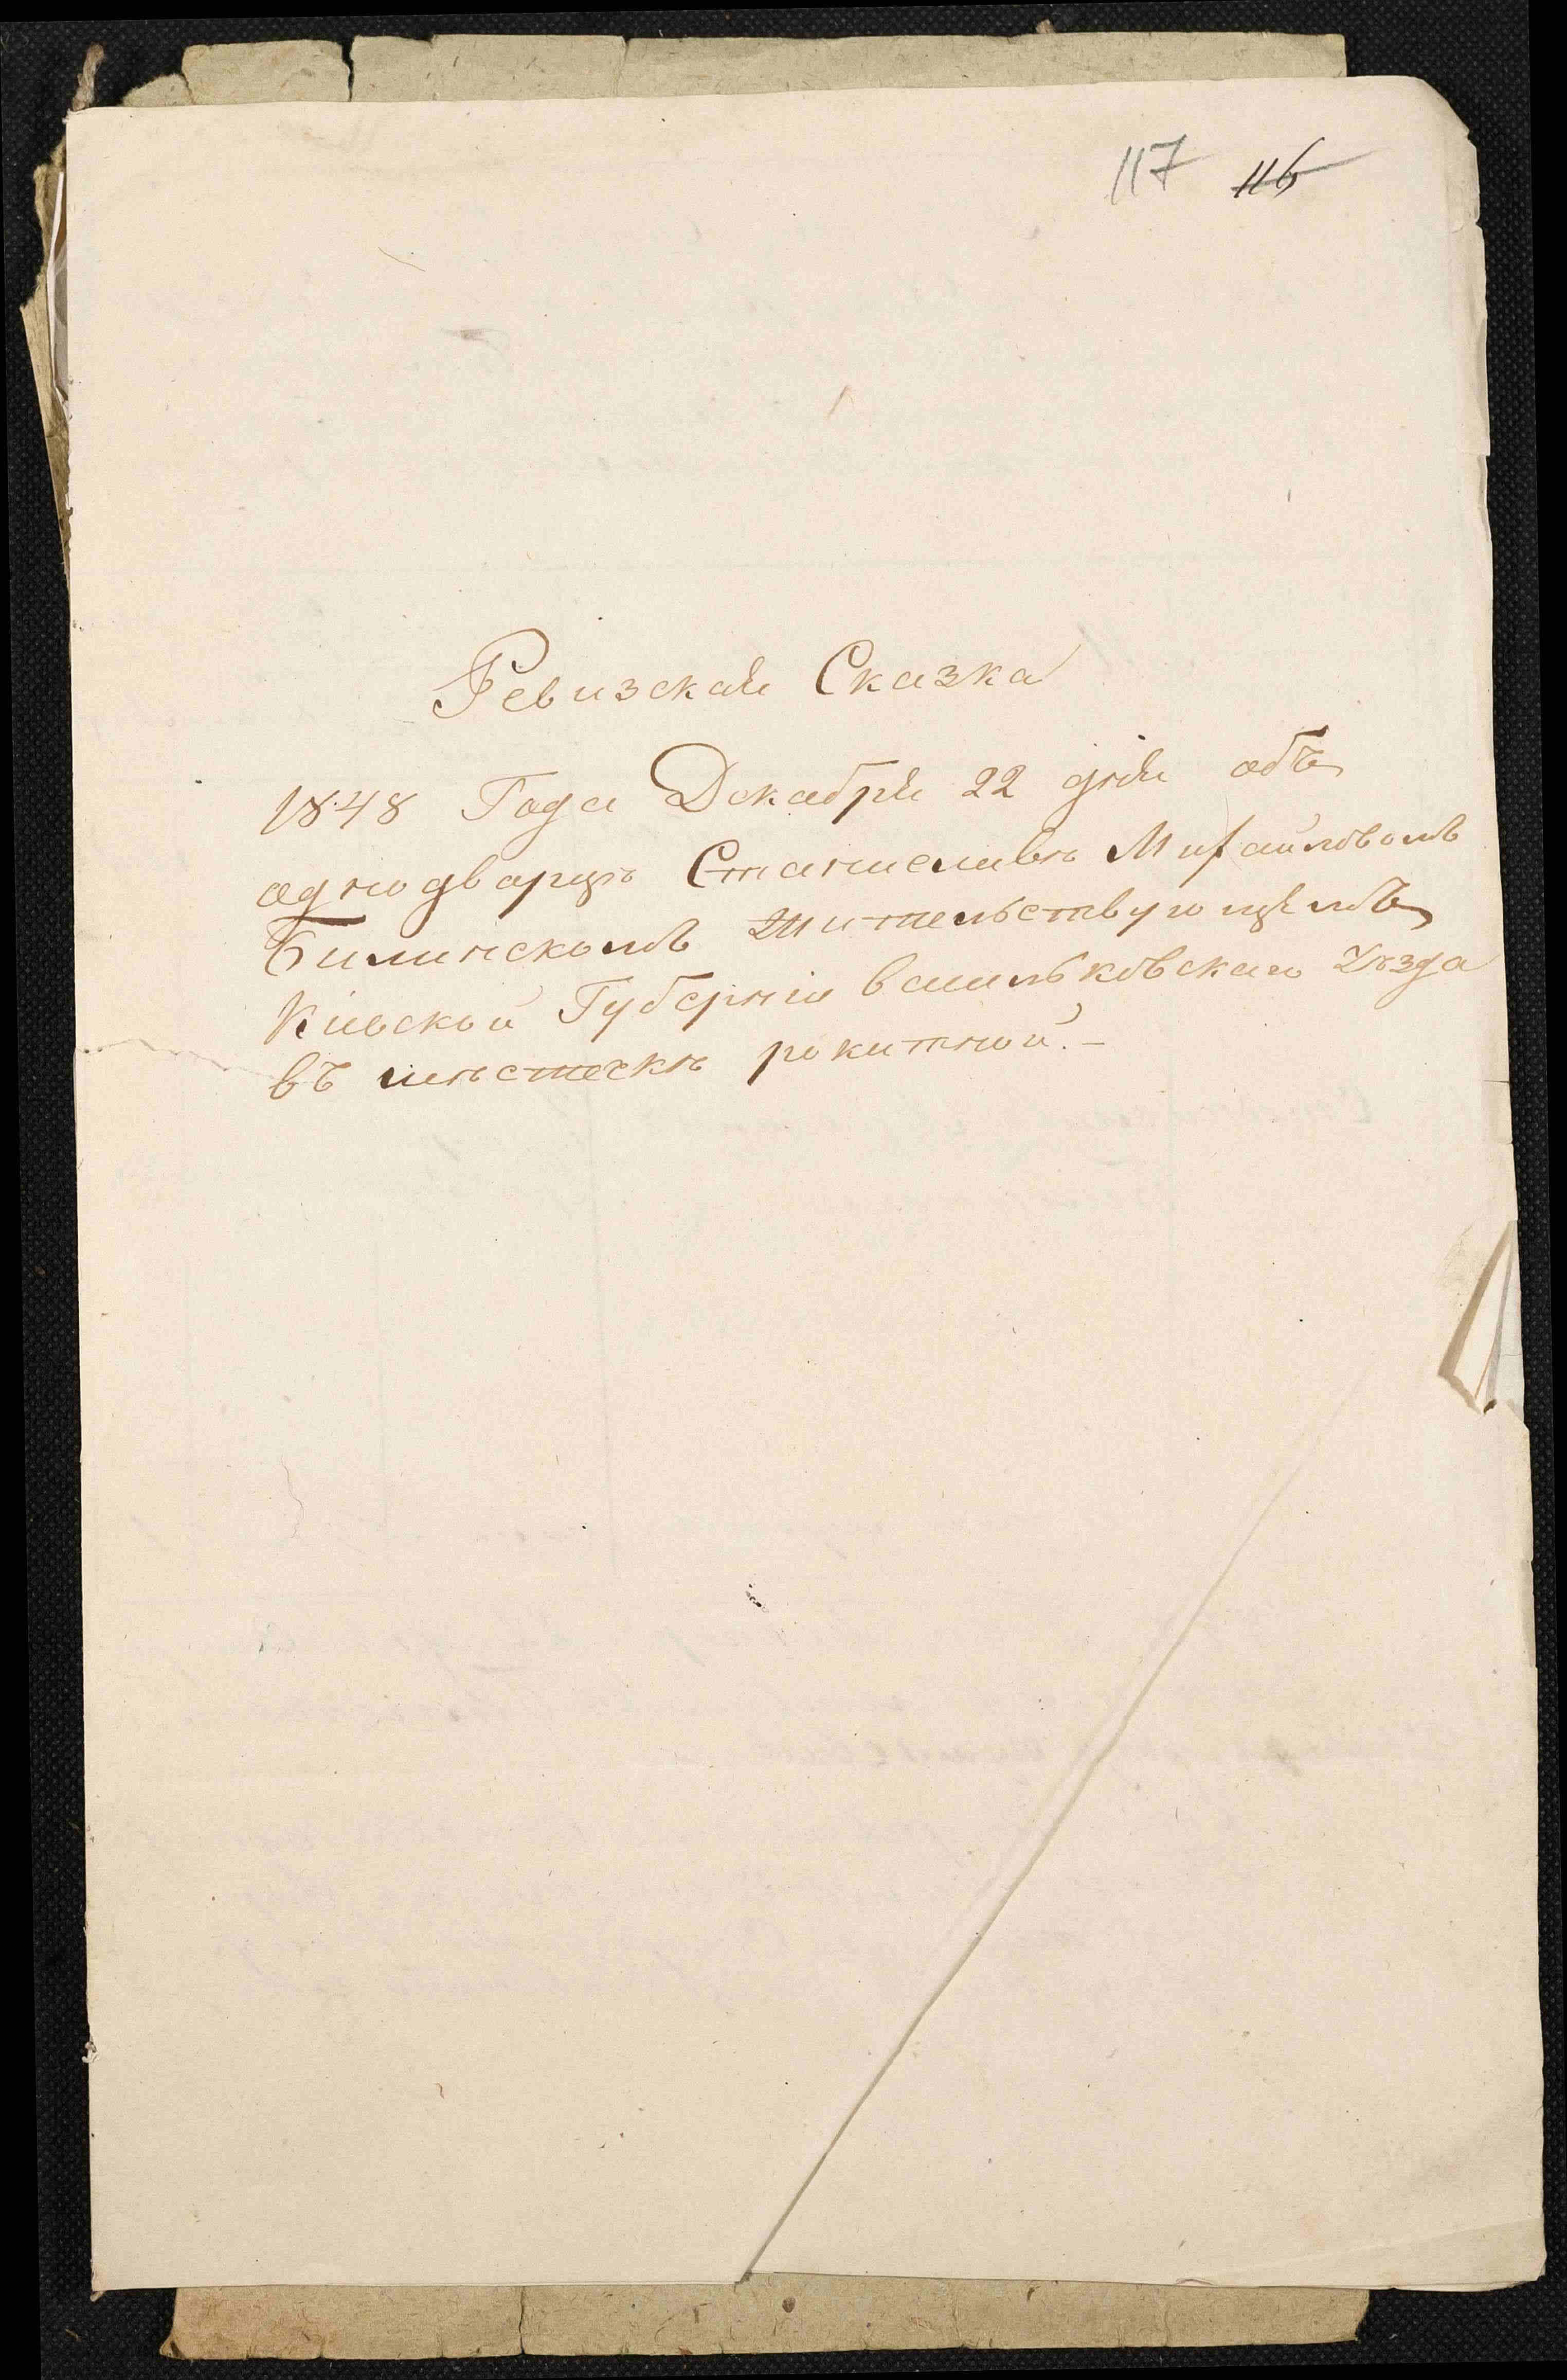 117 116
Ревизская Сказка
1848 Года Декабря 22 дня объ
однодварцѣ Станиславѣ Михайловомъ
Билинскомъ Жительствующемъ
Кіевской Губерніи васильковскаго Уѣзда
въ местечкѣ рокитной.-